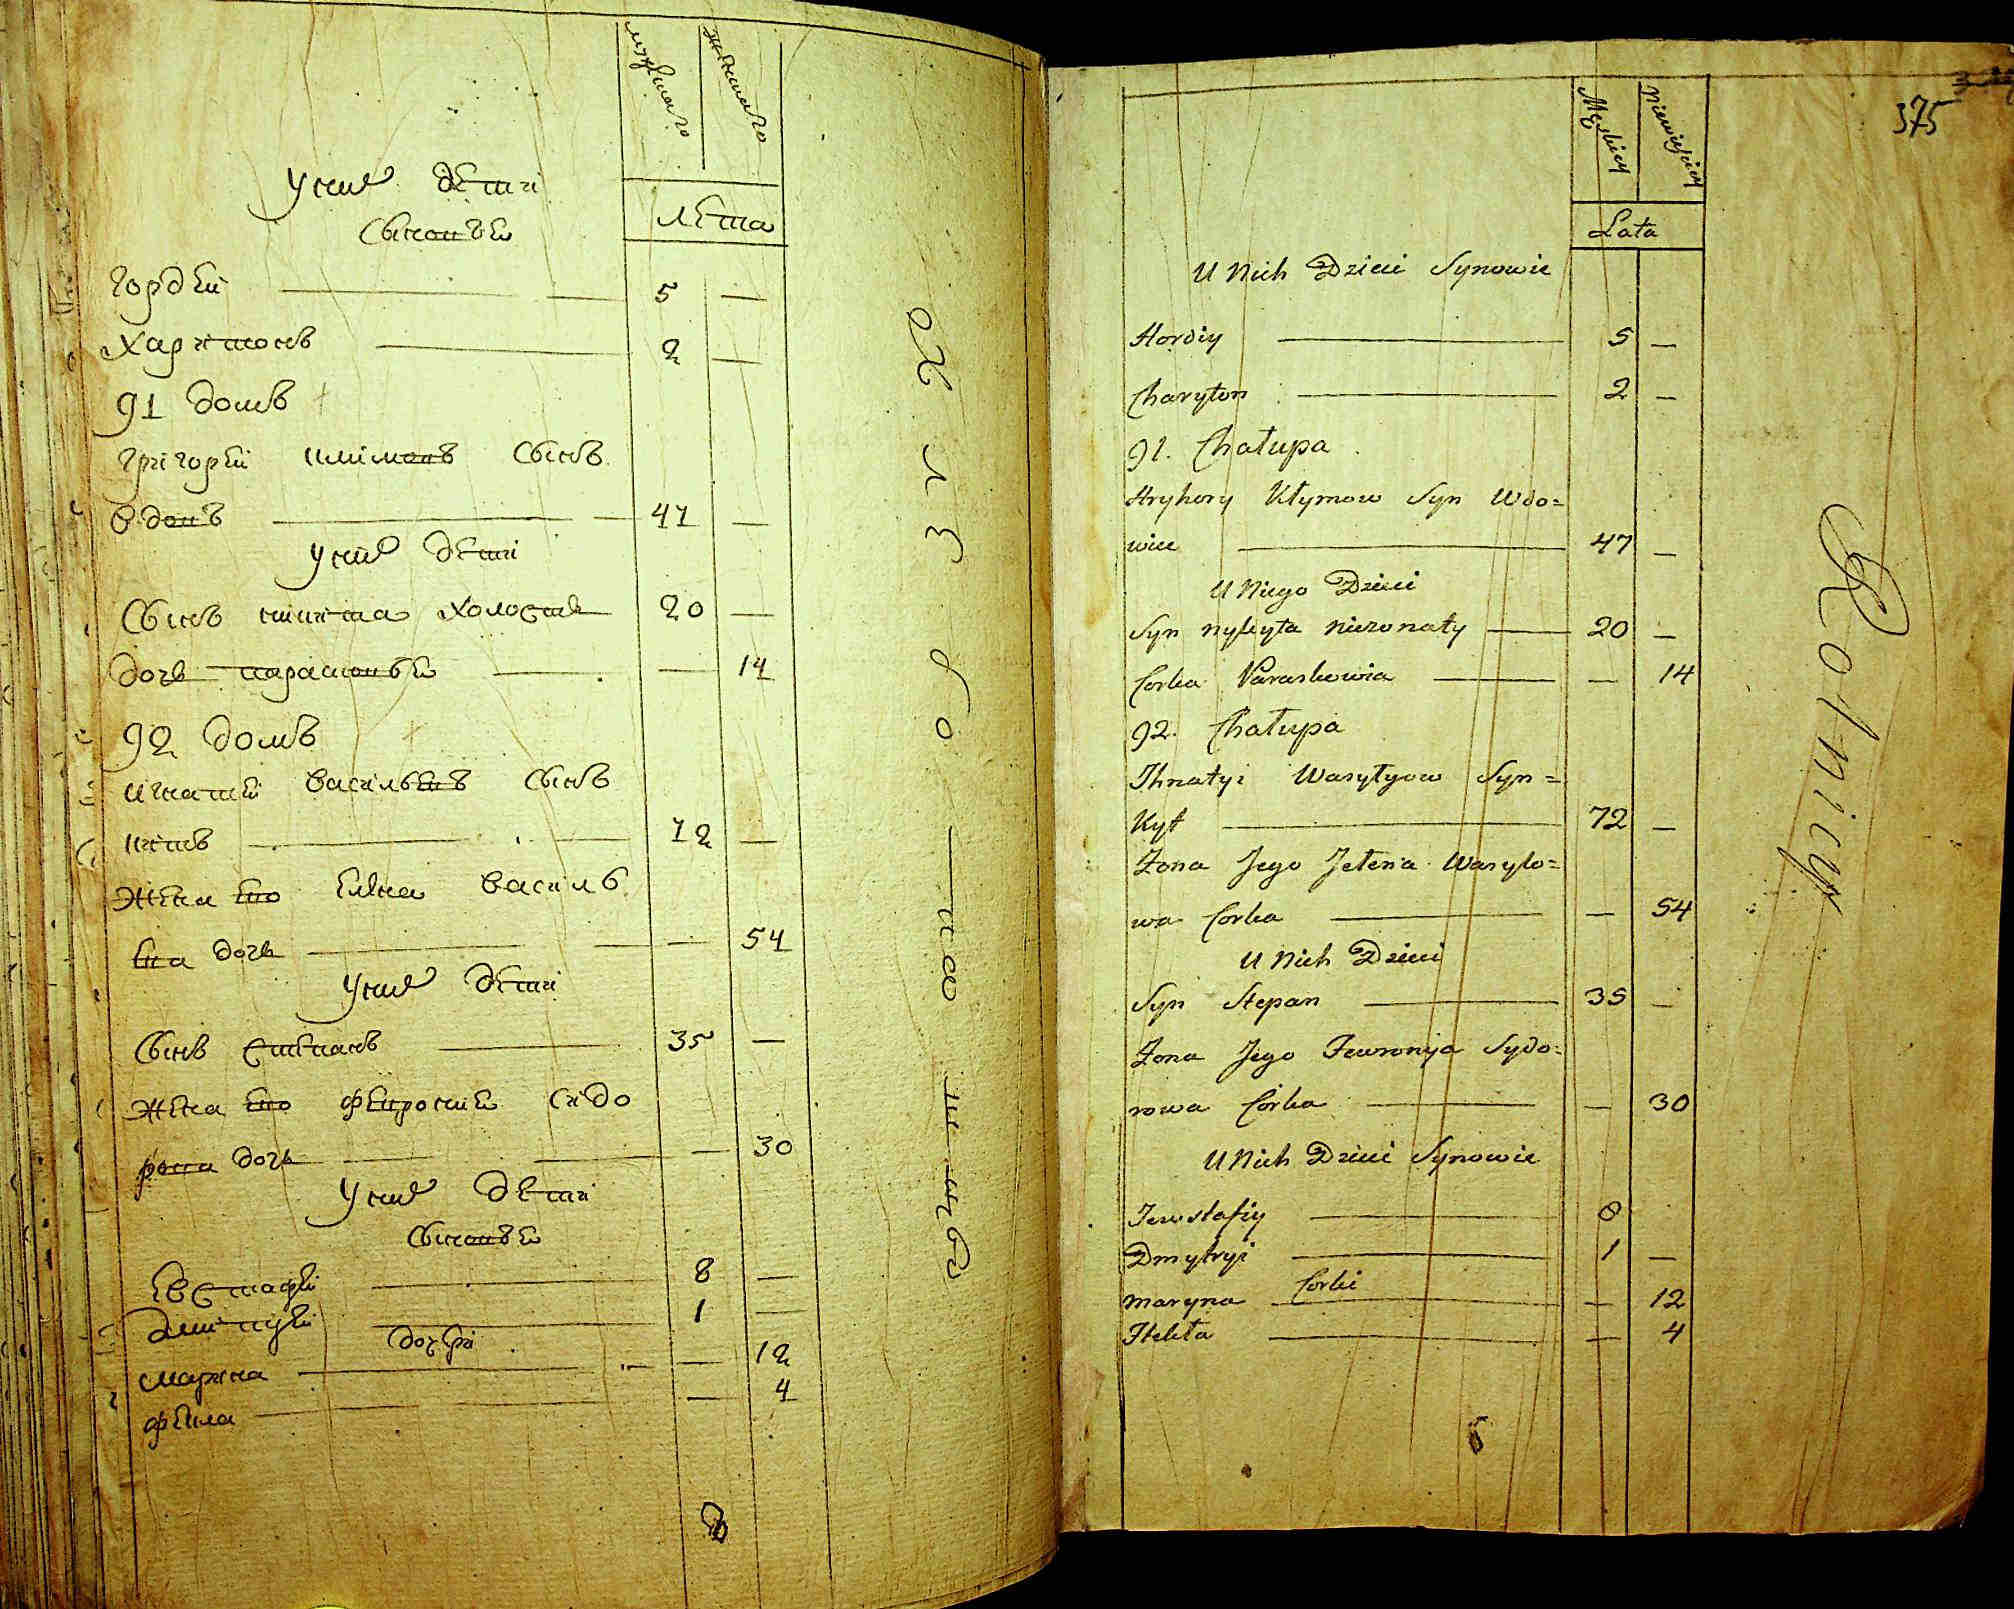 мужска го
женска го
Лета
У них дети
Сыновья
Гордей — 5 —
Харитонъ — 2 —
91 домъ
Григорей Климовъ Сынъ
вдовъ — 47 —
У них дети
Сынъ никита холостъ 20 —
дочь парасковья — — 14
92 домъ
Игнатей Васильевъ Сынъ
китъ — 72 —
Жена ево Елена Василь
ева дочь — — 54
У них дети
Сынъ Степанъ — 35 —
Жена ево Феврония Сидо
рова дочь — — 30
У них дети
Сыновья
Евстафей — 8 —
Дмитрей — 1 —
дочери
Марина — — 12
Фекла — — 4
Хлебо пашцов
375
Męskiey
Niewieściey
Lata
U Nich Dzieci Synowie
Hordiy — 5 —
Charyton — 2 —
91. Chałupa
Hryhory Kłymow Syn Wdo=
wiec — 47 —
U Niego Dzieci
Syn nykyta nieżonaty — 20 —
Corka Paraskowia — — 14
92. Chałupa
Ihnatyi Wasylyow Syn=
Kyt — 72 —
Żona Jego Jełena Wasylo=
wa Corka — — 54
U Nich Dzieci
Syn Stepan — 35 —
Żona Jego Fewronija Sydo=
rowa Corka — — 30
U Nich Dzieci Synowie
Jewstafiy — 8
Dmytryi — 1 —
Corki
Maryna — — 12
Tekla — — 4
Rolnicy